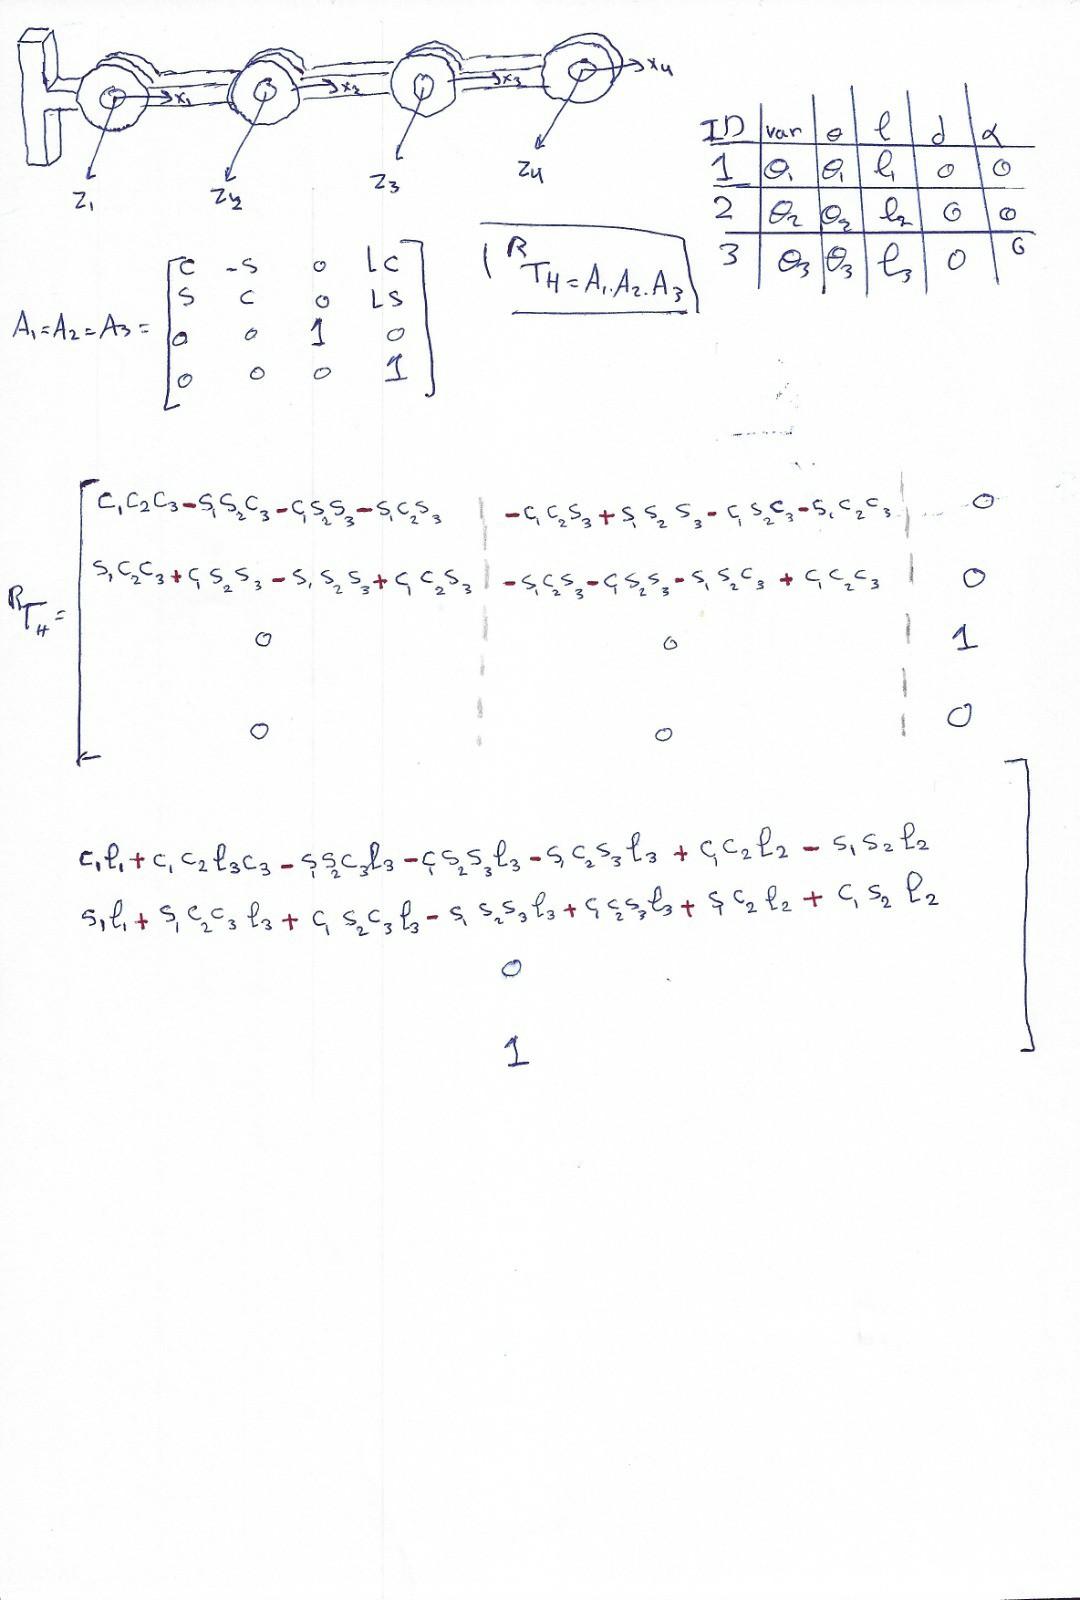 x₁ x₂ x₃ x₄
z₁ z₂ z₃ z₄
ID var θ l d α
1 θ₁ θ₁ l₁ 0 0
2 θ₂ θ₂ l₂ 0 0
3 θ₃ θ₃ l₃ 0 0
ᴿT_H = A₁.A₂.A₃
A₁=A₂=A₃=
C -S 0 LC
S C 0 LS
0 0 1 0
0 0 0 1
ᴿT_H =
C₁C₂C₃-S₁S₂C₃-C₁S₂S₃-S₁C₂S₃ -C₁C₂S₃+S₁S₂S₃-C₁S₂C₃-S₁C₂C₃ 0
S₁C₂C₃+C₁S₂S₃-S₁S₂S₃+C₁C₂S₃ -S₁C₂S₃-C₁S₂S₃-S₁S₂C₃+C₁C₂C₃ 0
0 0 1
0 0 0
C₁l₁+C₁C₂l₃C₃-S₁S₂C₃l₃-C₁S₂S₃l₃-S₁C₂S₃l₃+C₁C₂l₂-S₁S₂l₂
S₁l₁+S₁C₂C₃l₃+C₁S₂C₃l₃-S₁S₂S₃l₃+C₁C₂S₃l₃+S₁C₂l₂+C₁S₂l₂
0
1